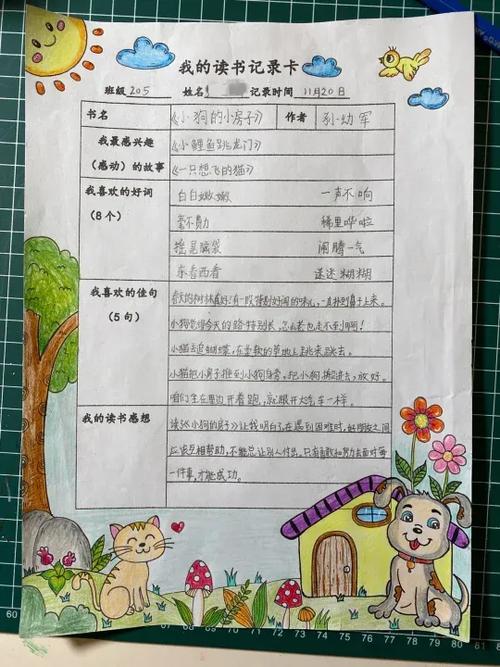 我的读书记录卡
班级 205 姓名 记录时间 11月20日
书名 《小狗的小房子》 作者 孙幼军
我最感兴趣 《小鲤鱼跳龙门》
(感动)的故事 《一只想飞的猫》
我喜欢的好词 白白嫩嫩 一声不响
(8个) 毫不费力 稀里哗啦
摇晃脑袋 闹腾一气
东看西看 迷迷糊糊
我喜欢的佳句 春天的树林真好!有一股特别好闻的味儿,一直扑到鼻子上来。
(5句) 小狗觉得今天的路特别长,怎么老也走不到啊!
小猫去追蝴蝶,在柔软的草地上跳来跳去。
小猫把小房子推到小狗身旁,把小狗搬进去,放好。
咱们坐在里边开着跑,就跟开大汽车一样。
我的读书感想 读《小狗的房子》让我明白了在遇到困难时,好朋友之间
应该互相帮助,不能总让别人付出,只有勇敢和努力去面对每
一件事,才能成功。